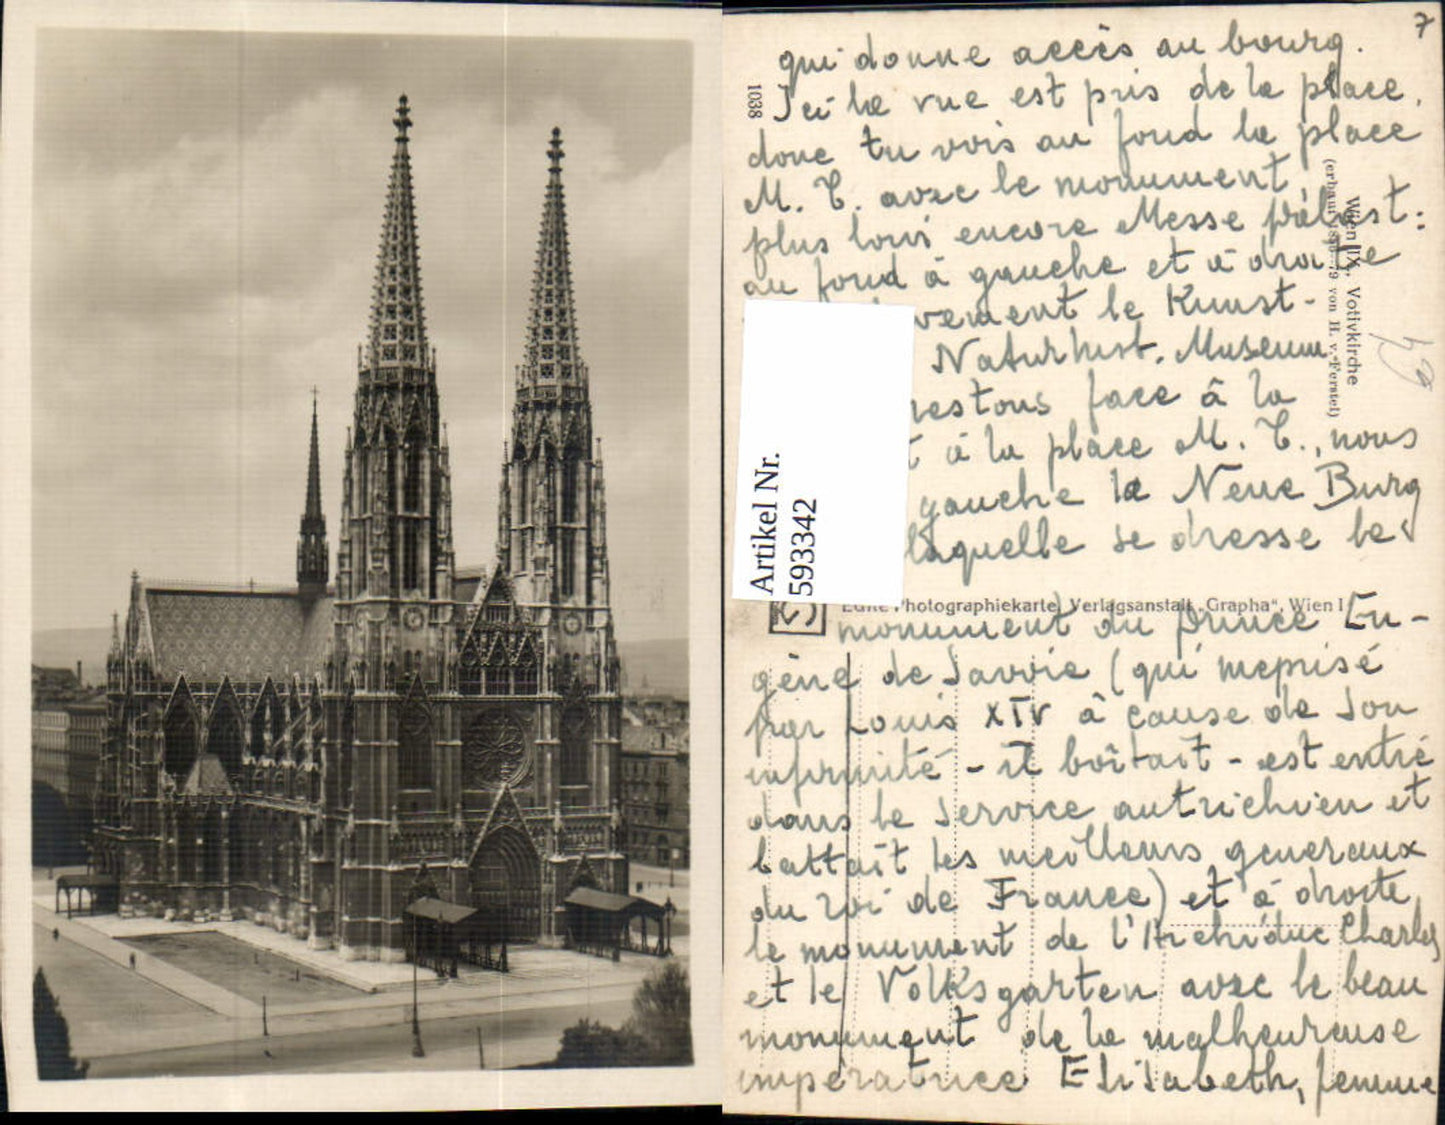 7
qui donne accès au bourg.
Ici la vue est pris de la place,
donc tu vois au fond la place
M. T. avec le monument,
plus loin encore Messepalast:
au fond à gauche et à droite
vement le Kunst-
Naturhist. Museum
restous face à la
t à la place M. T., nous
gauche la Neue Burg
laquelle se dresse le
monument du prince Eu-
gène de Savoie (qui meprisé
par Louis XIV à cause de son
infirmité - il boîtait - est entré
dans le service autrichien et
battait les meilleurs generaux
du roi de France) et à droite
le monument de l'Archiduc Charles
et le Volksgarten avec le beau
monument de la malheureuse
imperatrice Elisabeth, femme
1038
Wien IX., Votivkirche
(erbaut 1856–79 von H. v. Ferstel)
Artikel Nr.
593342
Echte Photographiekarte, Verlagsanstalt „Grapha“, Wien I